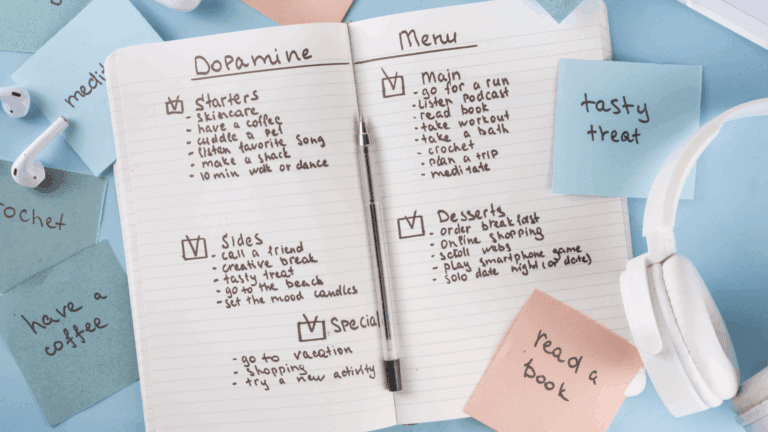 Dopamine Menu
Starters
- skincare
- have a coffee
- cuddle a pet
- listen favorite song
- make a snack
- 10 min walk or dance
Sides
- call a friend
- creative break
- tasty treat
- go to the beach
- set the mood candles
Special
- go to vacation
- shopping
- try a new activity
Main
- go for a run
- listen podcast
- read book
- take workout
- take a bath
- crochet
- plan a trip
- meditate
Desserts
- order breakfast
- online shopping
- scroll webs
- play smartphone game
- solo date night (or date)
medit
crochet
have a
coffee
tasty
treat
read a
book